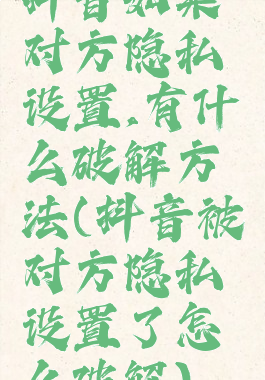 抖音如果
对方隐私
设置,有什
么破解方
法(抖音被
对方隐私
设置了怎
么破解)